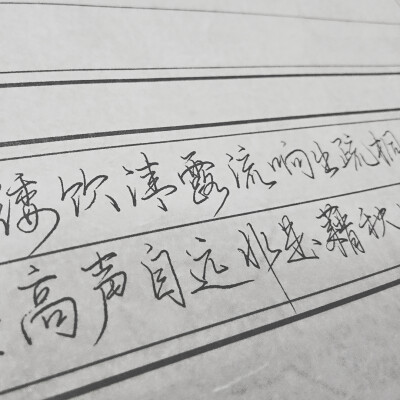 緌饮清露流响出疏桐
高声自远非是藉秋